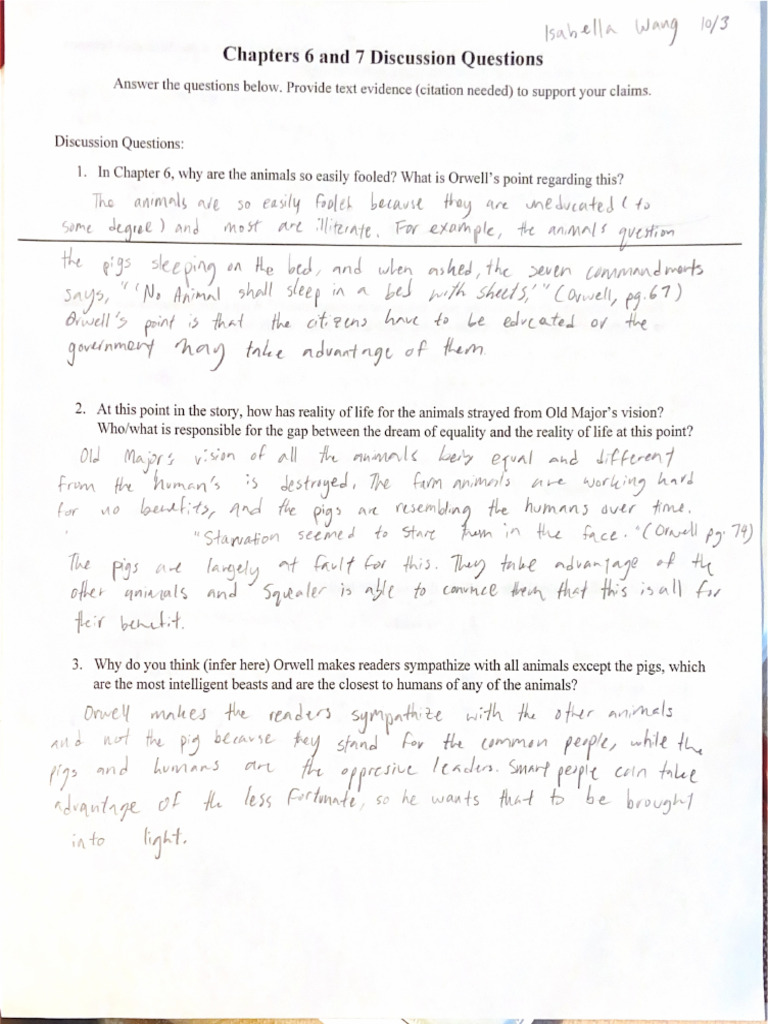 Isabella Wang 10/3
Chapters 6 and 7 Discussion Questions
Answer the questions below. Provide text evidence (citation needed) to support your claims.
Discussion Questions:
1. In Chapter 6, why are the animals so easily fooled? What is Orwell's point regarding this?
The animals are so easily fooled because they are uneducated (to
some degree) and most are illiterate. For example, the animals question
the pigs sleeping on the bed, and when asked, the seven commandments
says, "'No Animal shall sleep in a bed with sheets,'" (Orwell, pg.67)
Orwell's point is that the citizens have to be educated or the
government may take advantage of them.
2. At this point in the story, how has reality of life for the animals strayed from Old Major's vision?
Who/what is responsible for the gap between the dream of equality and the reality of life at this point?
Old Major's vision of all the animals being equal and different
from the human's is destroyed. The farm animals are working hard
for no benefits, and the pigs are resembling the humans over time.
"Starvation seemed to stare them in the face." (Orwell pg. 74)
The pigs are largely at fault for this. They take advantage of the
other animals and Squealer is able to convince them that this is all for
their benefit.
3. Why do you think (infer here) Orwell makes readers sympathize with all animals except the pigs, which
are the most intelligent beasts and are the closest to humans of any of the animals?
Orwell makes the readers sympathize with the other animals
and not the pig because they stand for the common people, while the
pigs and humans are the oppresive leaders. Smart people can take
advantage of the less fortunate, so he wants that to be brought
into light.